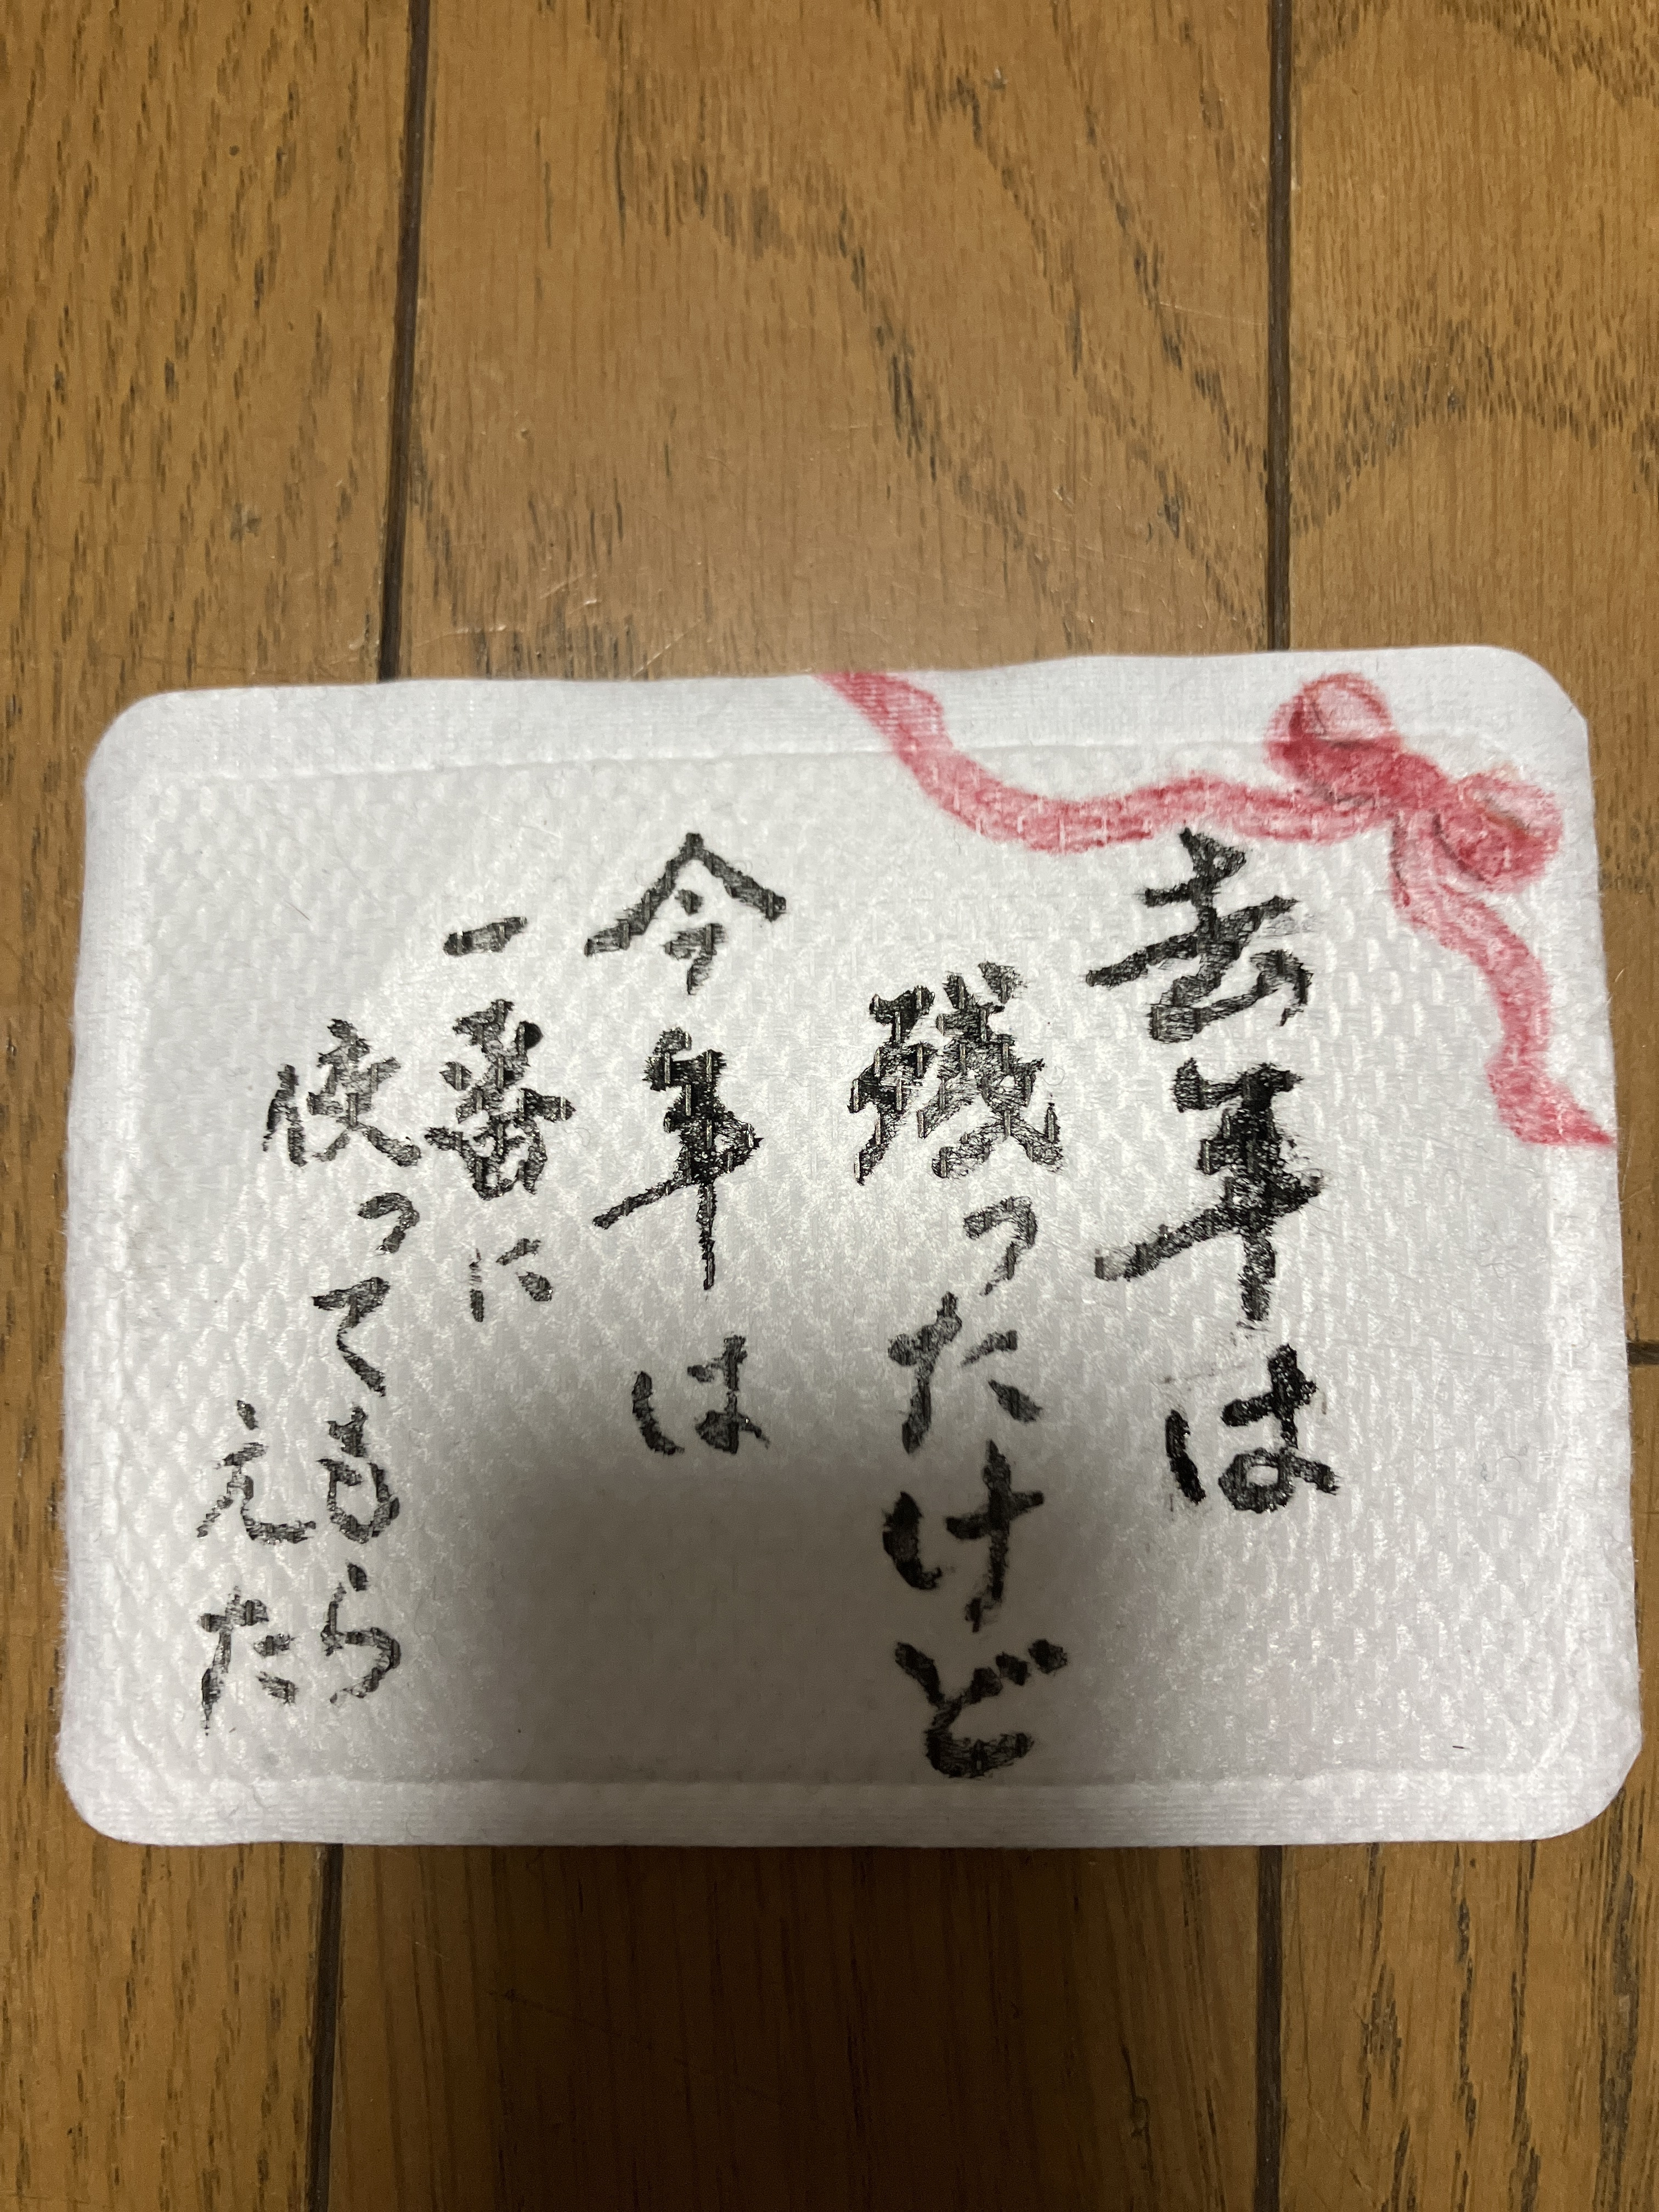 去年は
残ったけど
今年は
一番に
使っても
らえた